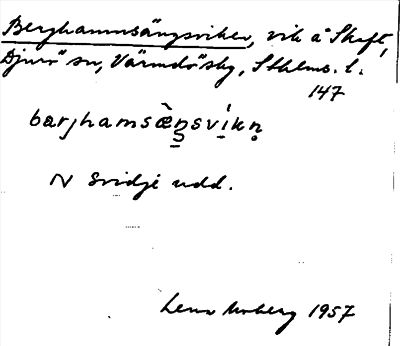 Berghamnsängsviken, vik å Skeft,
Djurö sn, Värmdö sbg, Sthlms. l.
147
barjhamsæ̀ŋsvíkn̥
N Svidje udd.
Lena Moberg 1957